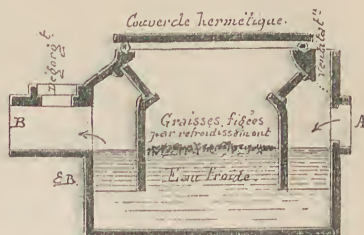 Couvercle hermétique.
dégorg.t
ventilat.n
Graisses figées
par refroidissement
B
A
Eau froide.
EB.